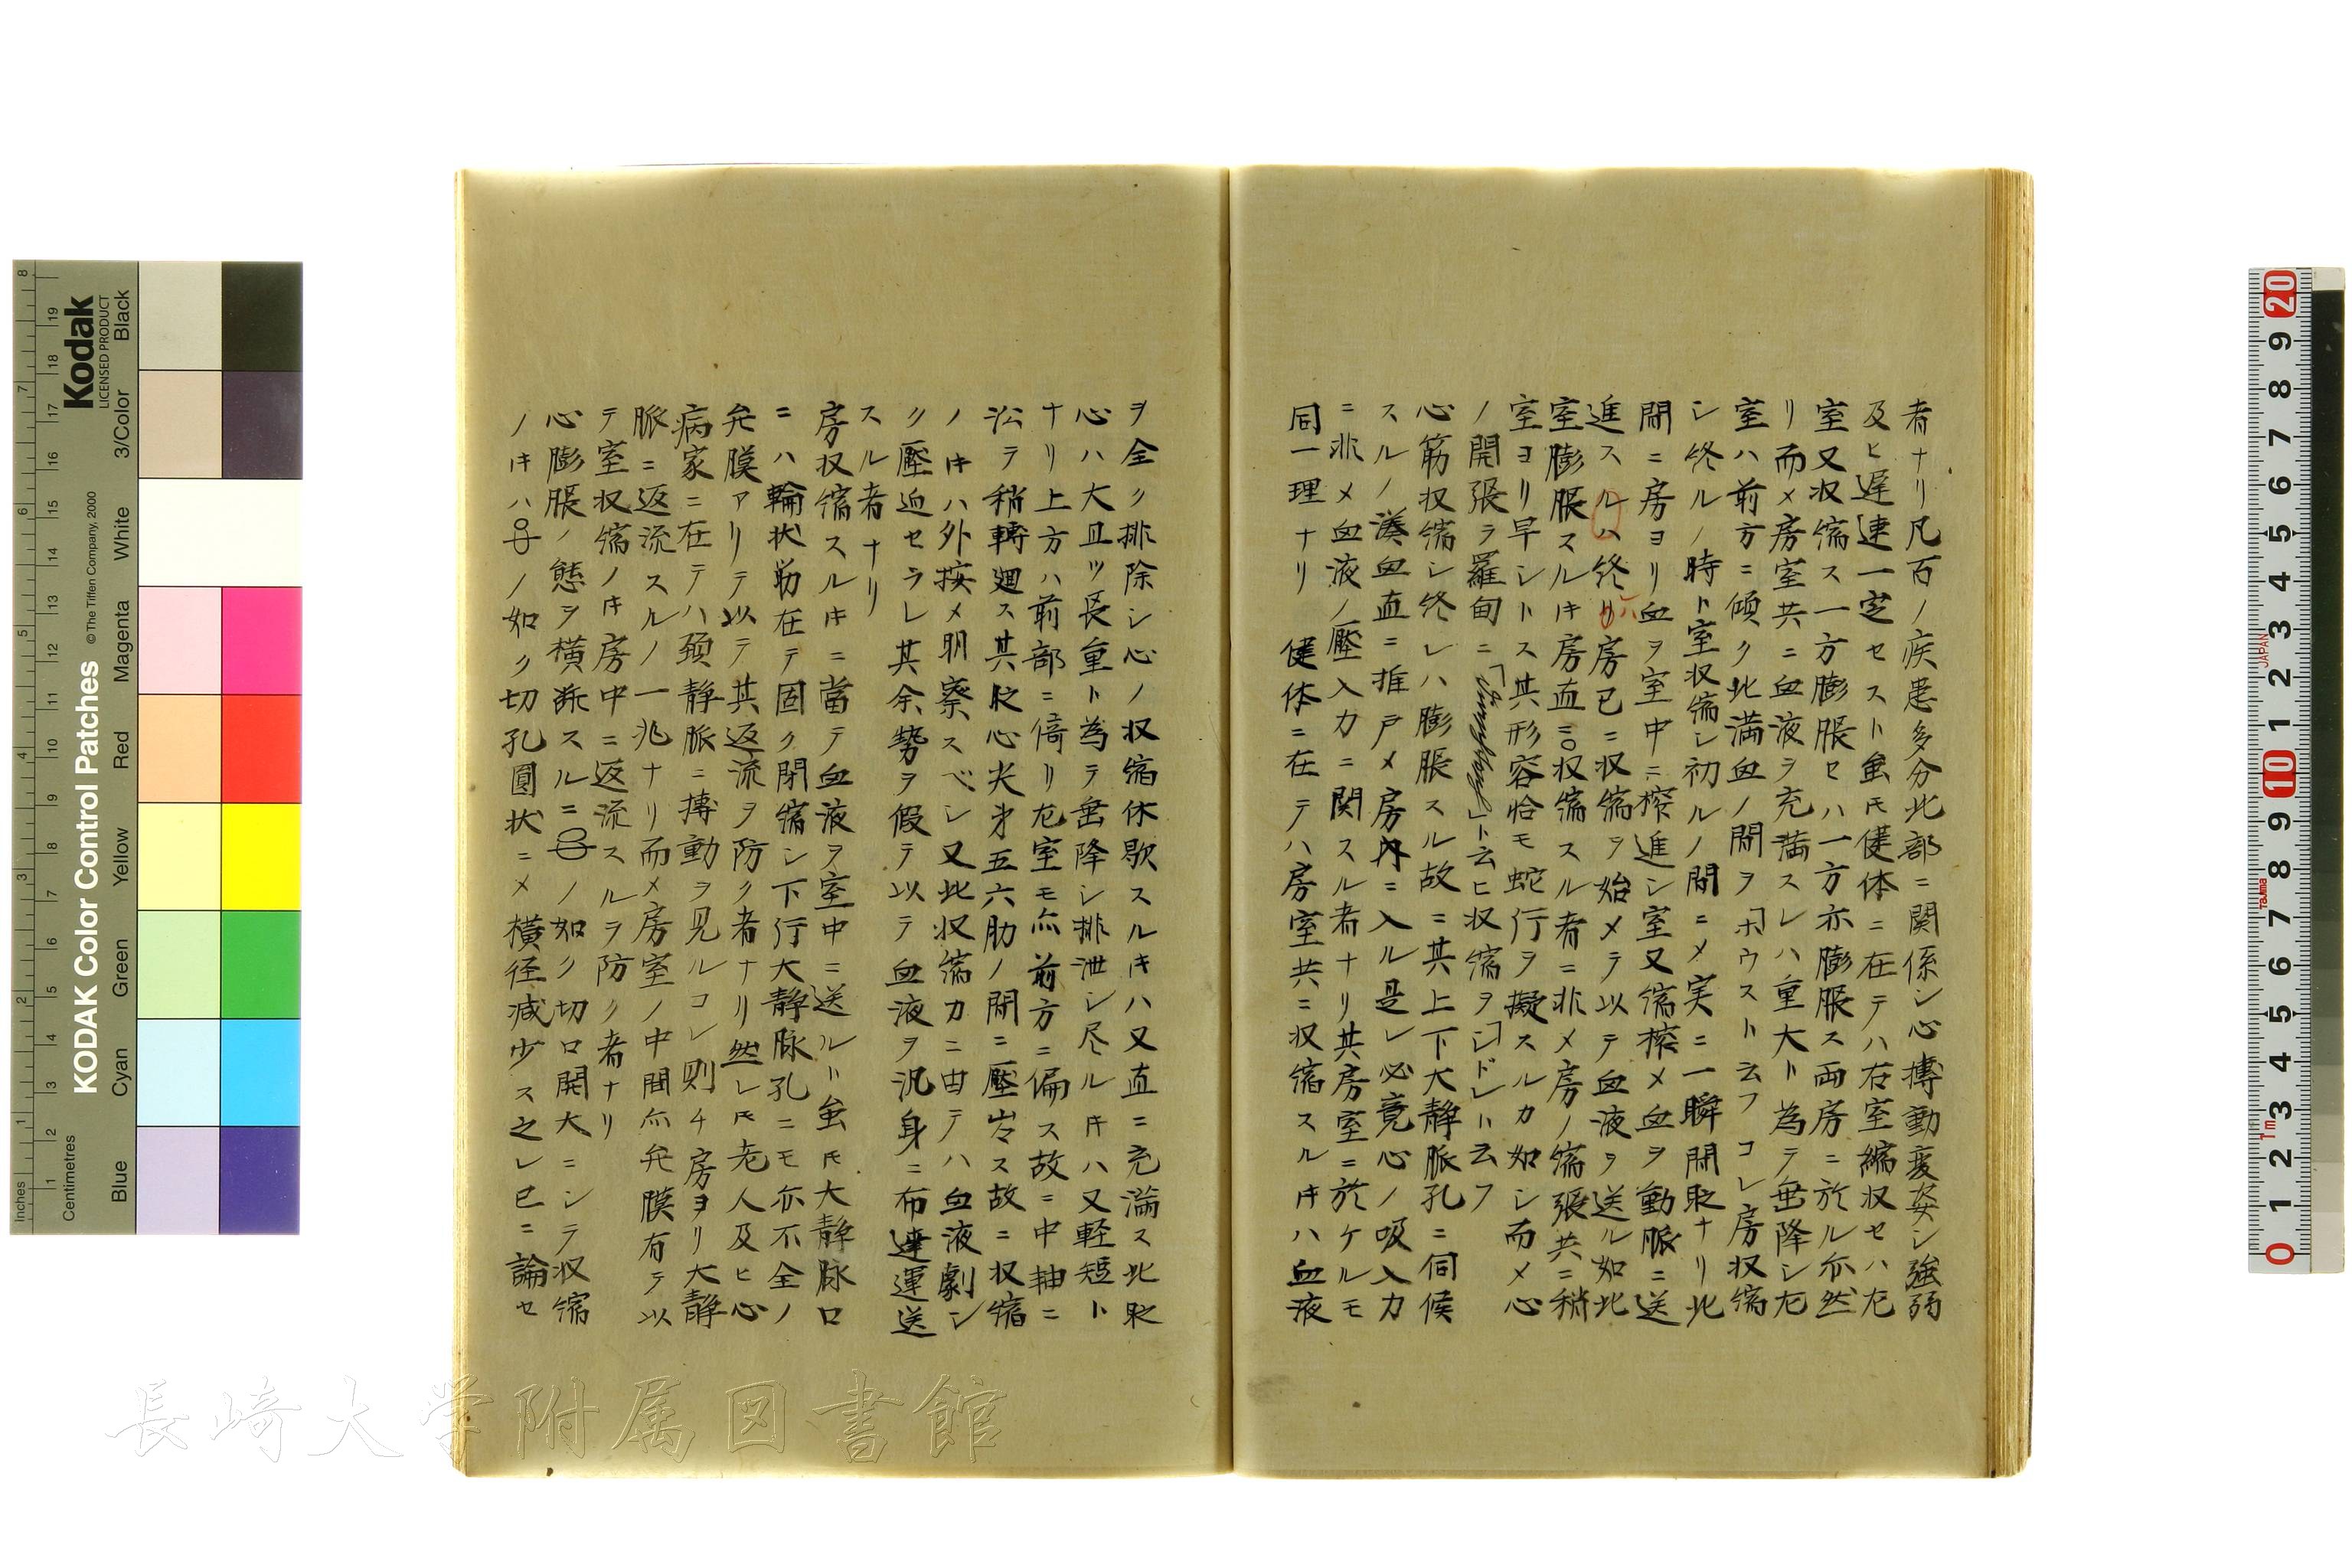 者ナリ凡百ノ疾患多分此部ニ関係シ心搏動変姿シ強弱
及ヒ遅速一定セスト虽𪜈健体ニ在テハ右室縮収セハ左
室又収縮ス一方膨脹セハ一方亦膨脹ス両房ニ於ル亦然
リ而〆房室共ニ血液ヲ充満スレハ重大ト為テ垂降シ左
室ハ前方ニ傾ク此満血ノ間ヲ「ホウスト云フコレ房収縮
シ終ルノ時ト室収縮シ初ルノ間ニ〆実ニ一瞬間耳ナリ此
間ニ房ヨリ血ヲ室中ニ搾進シ室又縮搾〆血ヲ動脈ニ送
進スルハ終リ房已ニ収縮ヲ始メテ以テ血液ヲ送ル如此
室膨脹スルキ房直ニ収縮スル者ニ非〆房ノ縮張共ニ稍
室ヨリ早シトス其形容恰モ蛇行ヲ擬スルカ如シ而〆心
ノ開張ヲ羅甸ニ「」ト云ヒ収縮ヲ「シドレト云フ
心筋収縮シ終レハ膨脹スル故ニ其上下大静脈孔ニ伺候
スルノ湊血直ニ推戸〆房内ニ入ル是レ必竟心ノ吸入力
ニ非〆血液ノ壓入力ニ関スル者ナリ其房室ニ於ケルモ
同一理ナリ 健体ニ在テハ房室共ニ収縮スルキハ血液
ヲ全ク排除シ心ノ収縮休歇スルキハ又直ニ充満ス此耳
心ハ大且ツ長重ト為テ垂降シ排泄シ尽ルキハ又軽短ト
ナリ上方ハ前部ニ倚リ左室モ亦前方ニ偏ス故ニ中軸ニ
沿テ稍轉廻ス其心尖第五六肋ノ間ニ壓出ス故ニ収縮
ノキハ外按〆明察スベシ又此収縮力ニ由テハ血液劇シ
ク壓迫セラレ其余勢ヲ假テ以テ血液ヲ汎身ニ布達運送
スル者ナリ
房収縮スルキニ當テ血液ヲ室中ニ送ルト虽𪜈大静脉口
ニハ輪状筋在テ固ク閉縮シ下行大静脉孔ニモ亦不全ノ
弁膜アリテ以テ其返流ヲ防ク者ナリ然レ𪜈老人及ヒ心
病家ニ在テハ頚静脈ニ搏動ヲ見ルコレ則チ房ヨリ大静
脈ニ返流スルノ一兆ナリ而〆房室ノ中間亦弁膜有テ以
テ室収縮ノキ房中ニ返流スルヲ防ク者ナリ
心膨脹ノ態ヲ横断スルニノ如ク切口開大ニシテ収縮
ノキハノ如ク切孔圓状ニ〆横径減少ス之レ已ニ論セ
長崎大学附属図書館
Kodak
LICENSED PRODUCT
KODAK Color Control Patches © The Tiffen Company, 2000
Inches
Centimetres
Blue Cyan Green Yellow Red Magenta White 3/Color Black
JAPAN
Tajima